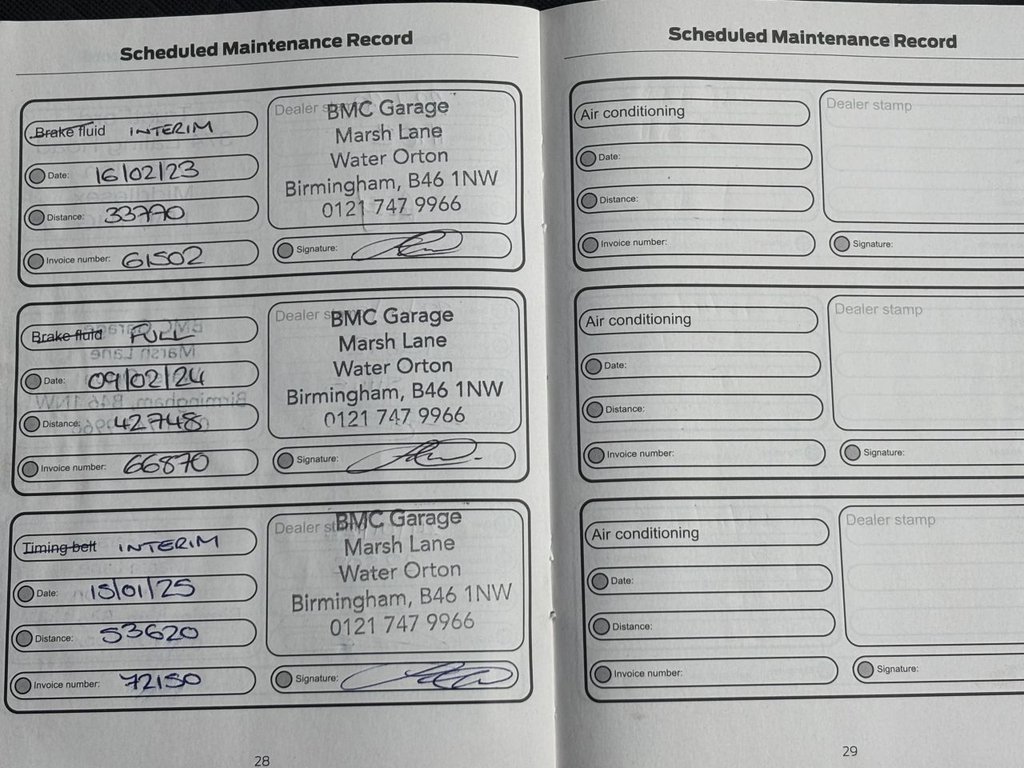 Scheduled Maintenance Record
Brake fluid INTERIM
Date: 16/02/23
Distance: 33770
Invoice number: 61502
Dealer stamp
BMC Garage
Marsh Lane
Water Orton
Birmingham, B46 1NW
0121 747 9966
Signature:
Brake fluid FULL
Date: 09/02/24
Distance: 42748
Invoice number: 66870
Dealer stamp
BMC Garage
Marsh Lane
Water Orton
Birmingham, B46 1NW
0121 747 9966
Signature:
Timing belt INTERIM
Date: 15/01/25
Distance: 53620
Invoice number: 72150
Dealer stamp
BMC Garage
Marsh Lane
Water Orton
Birmingham, B46 1NW
0121 747 9966
Signature:
28
Scheduled Maintenance Record
Air conditioning
Date:
Distance:
Invoice number:
Dealer stamp
Signature:
Air conditioning
Date:
Distance:
Invoice number:
Dealer stamp
Signature:
Air conditioning
Date:
Distance:
Invoice number:
Dealer stamp
Signature:
29